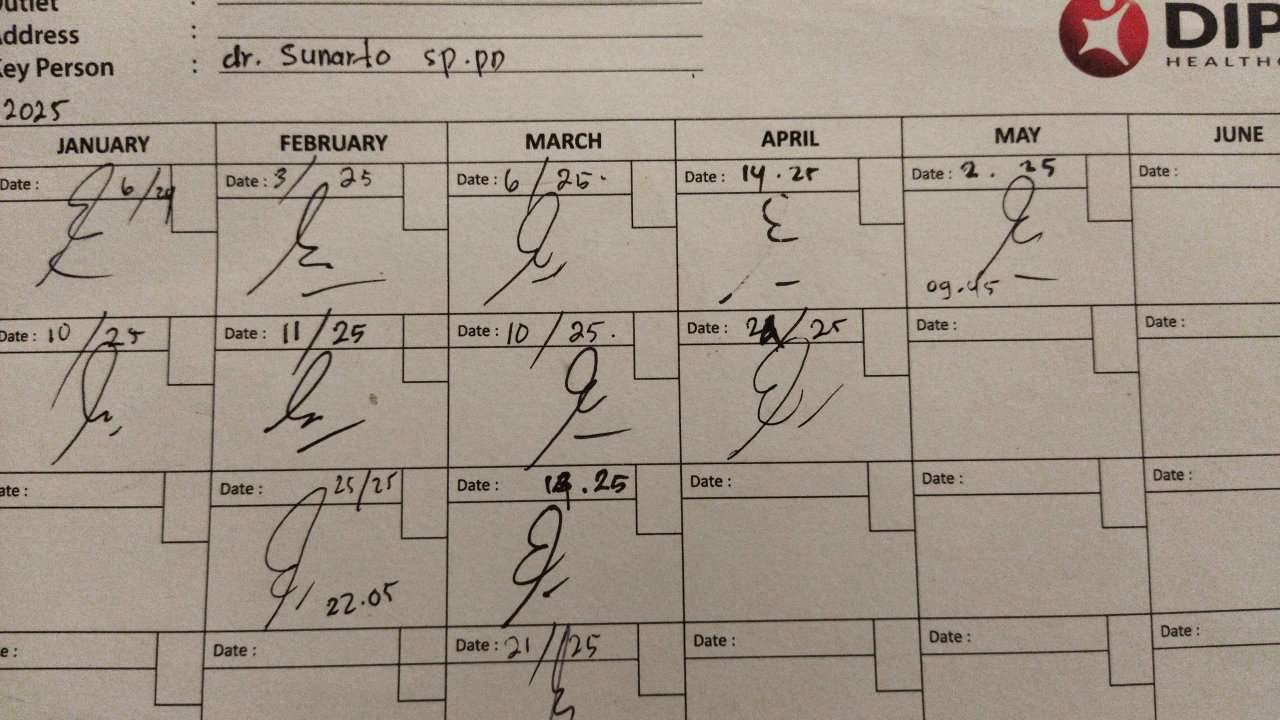 Outlet :
Address :
Key Person : dr. Sunarto sp.pd
2025
DIP
HEALTHC
JANUARY FEBRUARY MARCH APRIL MAY JUNE
Date : 6/ Date : 3/25 Date : 6/25. Date : 14.25 Date : 2.25 Date :
09.45
Date : 10/25 Date : 11/25 Date : 10/25. Date : /25 Date : Date :
ate : Date : 25/25 Date : .25 Date : Date : Date :
22.05
e : Date : Date : 21/25 Date : Date : Date :